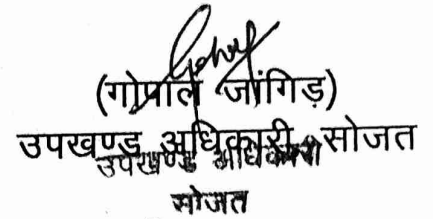 (गोपाल जांगिड़)
उपखण्ड अधिकारी, सोजत
उपखण्ड अधिकारी
सोजत